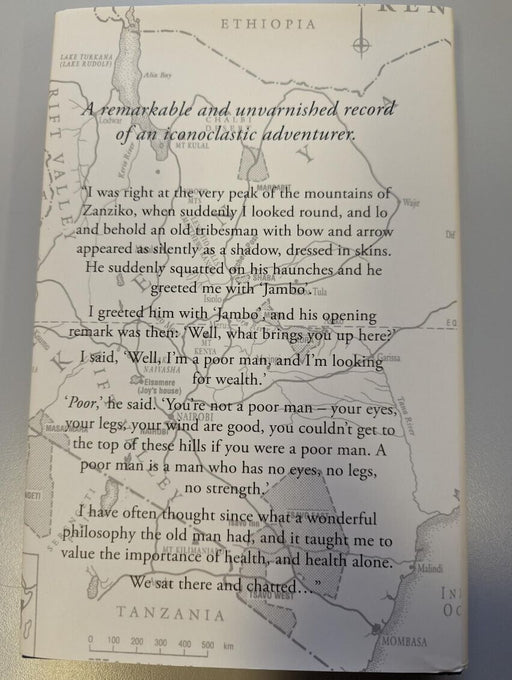 KEN
ETHIOPIA
LAKE TURKANA
(LAKE RUDOLF)
Alia Bay
A remarkable and unvarnished record
Lodwar
CHALBI
of an iconoclastic adventurer.
DESERT
MT KULAL
RIFT VALLEY
Kerio River
Y
"I was right at the very peak of the mountains of
MARSABIT
Zanziko, when suddenly I looked round, and lo
Wajir
and behold an old tribesman with bow and arrow
appeared as silently as a shadow, dressed in skins.
He suddenly squatted on his haunches and he
SHABA
greeted me with 'Jambo'.
Isiolo
I greeted him with 'Jambo', and his opening
remark was then: 'Well, what brings you up here?'
MT
KENYA
I said, 'Well, I'm a poor man, and I'm looking
Garissa
NAIVASHA
for wealth.'
Elsamere
(Joy's house)
'Poor,' he said. 'You're not a poor man – your eyes,
NAIROBI
Tana River
your legs, your wind are good, you couldn't get to
the top of these hills if you were a poor man. A
poor man is a man who has no eyes, no legs,
no strength.'
I have often thought since what a wonderful
TSAVO EAST
philosophy the old man had, and it taught me to
MT KILIMANJARO
value the importance of health, and health alone.
Malindi
We sat there and chatted…"
TSAVO WEST
TANZANIA
MOMBASA
0 100 200 300 400 500 km